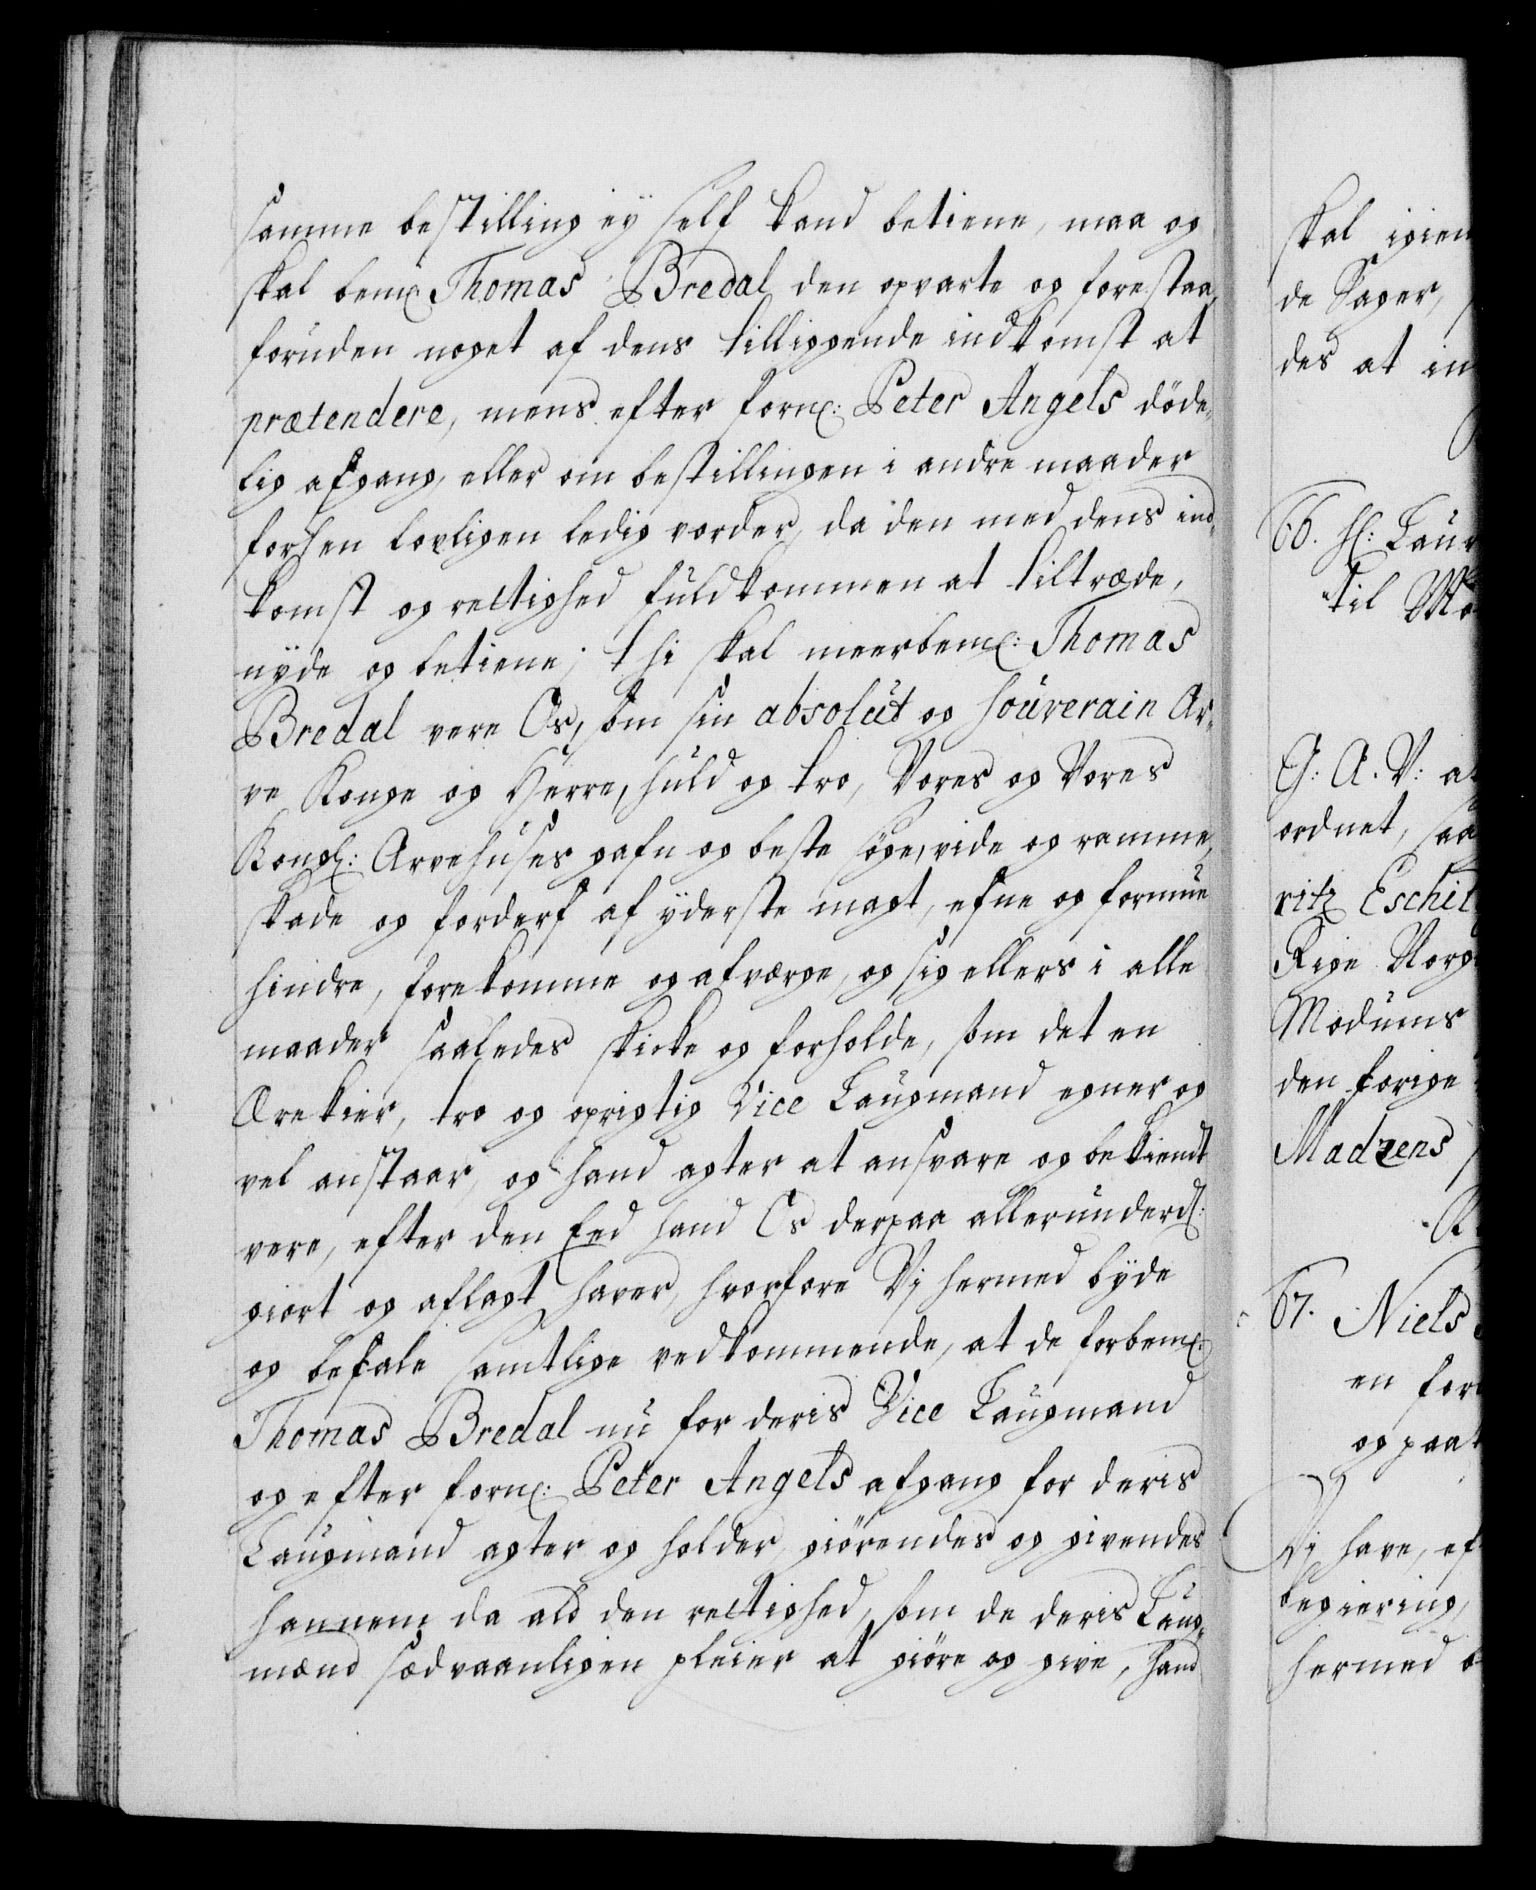 samme bestilling ey self kand betiene, maa og
skal bem: Thomas Bredal den opvarte og forestaa,
foruden noget af dens tilliggende indkomst at
prætendere, mens efter forn: Peter Angels döde,,
lig afgang, eller om bestillingen i andre maader
forhen lovligen ledig vorder, da den med dens ind,,
komst og rettighed fuldkommen at tiltræde,
nyde og betiene; thi skal meerbem: Thomas
Bredal være Os, som sin absolut og souverain Ar,,
ve Konge og Herre, huld og tro, Vores og Vores
Kongl: Arvehuses gafn og beste söge, vide og ramme,
skade og forderf af yderste magt, efne og formue
hindre, forekomme og afværge, og sig ellers i alle
maader saaledes skicke og forholde, som det en
Ærekier, tro og oprigtig Vice Laugmand egner og
vel anstaar, og hand agter at ansvare og bekiendt
være, efter den Eed hand Os derpaa allerunderd:
giort og aflagt haver, hvorfore Vj hermed byde
og befale samtlige vedkommende, at de forbem:
Thomas Bredal nu for deris Vice Laugmand
og efter forn: Peter Angels afgang for deris
Laugmand agter og holder, giörendes og givendes
hannem da ald den rettighed, som de deris Laug,,
mænd sædvaanligen pleier at giöre og give, hand
skal igien
de Sager,
des at in
66. H: Laur
til Mo
G: A. V: a
ordnet, saa
ritz Eschil
Rige Norg
Modums
den forige
Madzens
67. Niels
en for
og paa
Vj have, ef
begiering,
hermed b